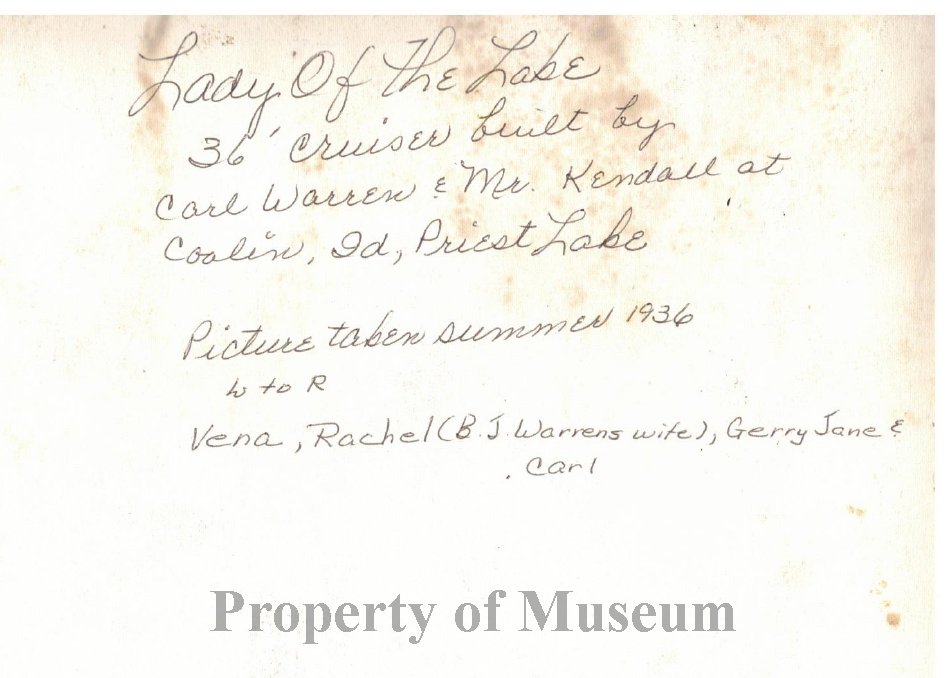 Lady Of The Lake
36' cruiser built by
Carl Warren & Mr. Kendall at
Coolin, Id, Priest Lake
Picture taken summer 1936
L to R
Vena, Rachel (B.J. Warrens wife), Gerry Jane &
Carl
Property of Museum